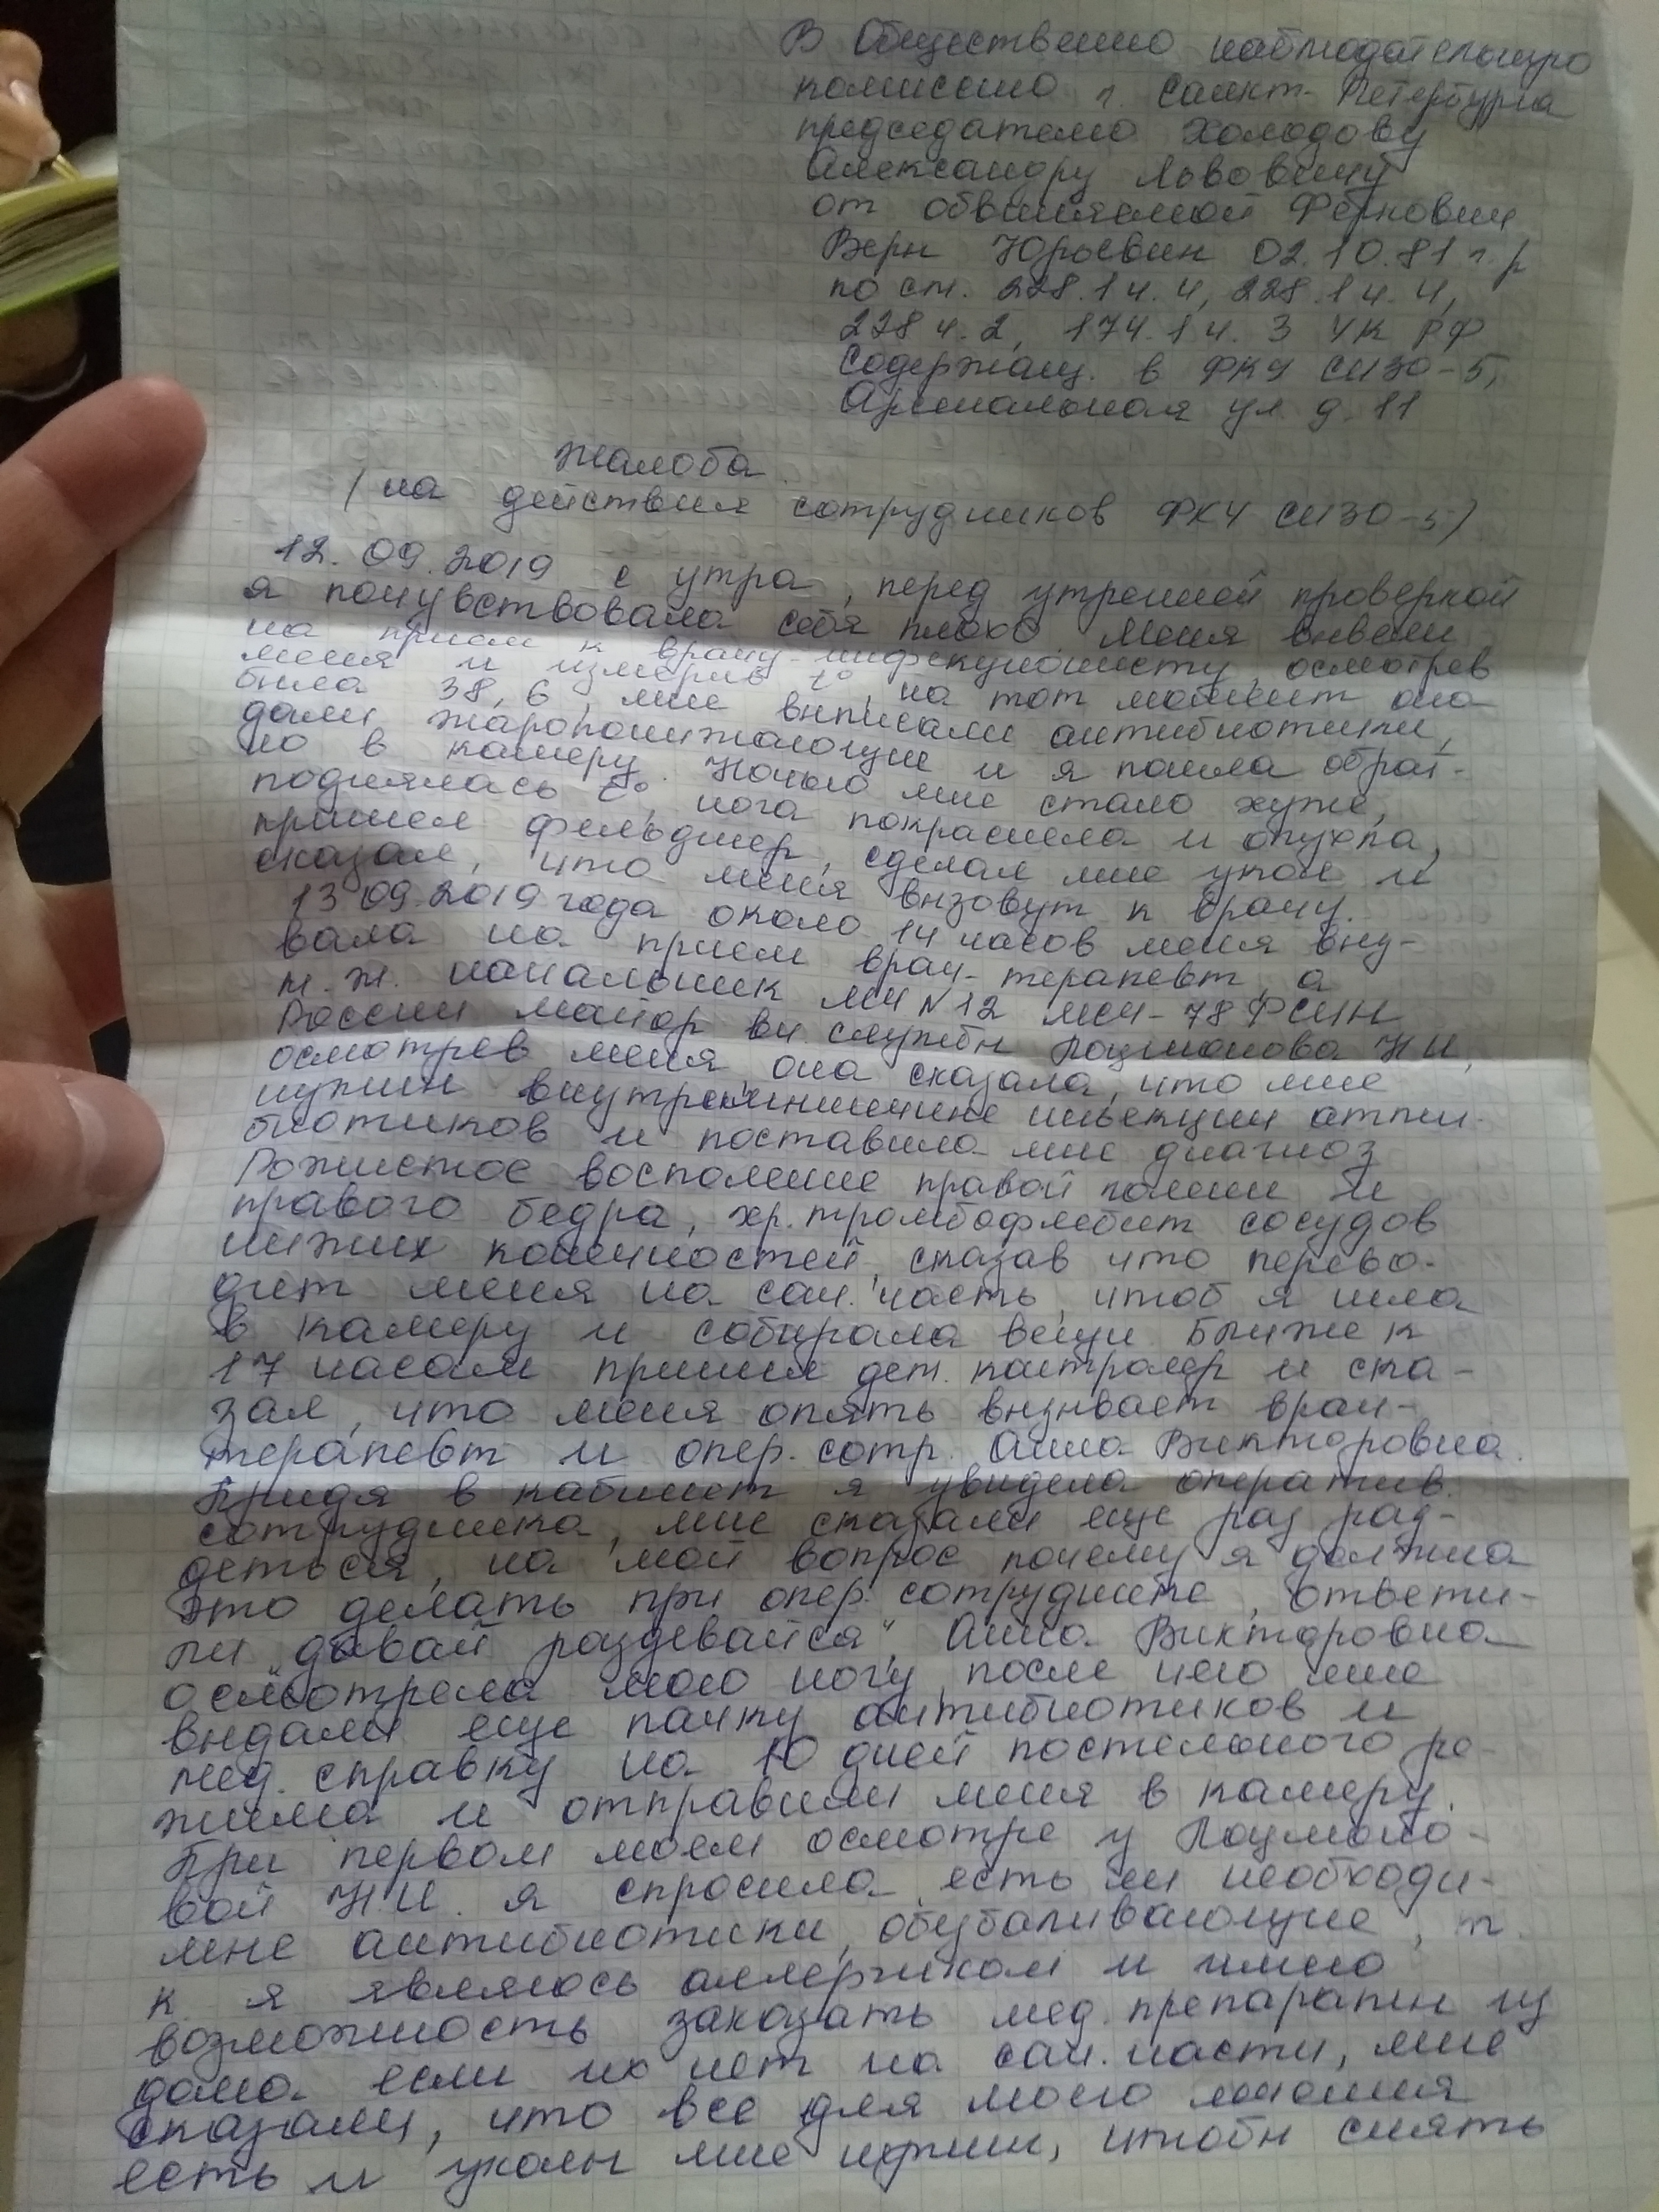 В Общественно наблюдательную
комиссию г. Санкт-Петербурга
председателю Холодову
Александру Львовичу
от обвиняемой
Веры Юрьевны 02.10.81 г.р
по ст. 228.1 ч.4, 228.1 ч.4,
228 ч.2, 174.1 ч.3 УК РФ
Содержащ. в ФКУ СИЗО-5,
Арсенальная ул. д.11
Жалоба
(на действия сотрудников ФКУ СИЗО-5)
12.09.2019 с утра, перед утренней проверкой
я почувствовала себя плохо. Меня вывели
на прием к врачу-инфекционисту, осмотрев
меня и измерив t°, на тот момент она
была 38,6, мне выписали антибиотики,
дали жаропонижающие и я пошла обрат-
но в камеру. Ночью мне стало хуже,
поднялась t°, нога покраснела и опухла,
пришел фельдшер, сделал мне укол и
сказал, что меня вызовут к врачу.
13.09.2019 года около 14 часов меня выз-
вала на прием врач-терапевт, а
т.ж. начальник МЧ №12 МСЧ-78 ФСИН
России майор вн. службы Н.И,
осмотрев меня, она сказала, что мне
нужны внутримышечные инъекции анти-
биотиков и поставила мне диагноз
Рожистое воспаление правой голени и
правого бедра, хр. тромбофлебит сосудов
нижних конечностей, сказав что перево-
дит меня на сан. часть, чтоб я шла
в камеру и собирала вещи. Ближе к
17 часам пришел деж. контролер и ска-
зал, что меня опять вызывает врач-
терапевт и опер. сотр. Анна Викторовна.
Придя в кабинет я увидела оператив.
сотрудника, мне сказали еще раз раз-
деться, на мой вопрос почему я должна
это делать при опер. сотруднике, ответи-
ли „давай раздевайся", Анна Викторовна
осмотрела мою ногу, после чего мне
выдали еще пачку антибиотиков и
мед. справку на 10 дней постельного ре-
жима и отправили меня в камеру.
При первом моем осмотре у
вой Н.И. я спросила, есть ли необходи-
мые антибиотики, обезбаливающие, т.
к. я являюсь аллергиком и имею
возможность заказать мед. препараты из
дома если их нет на сан. части, мне
сказали, что все для моего лечения
есть и уколы мне нужны, чтобы снять